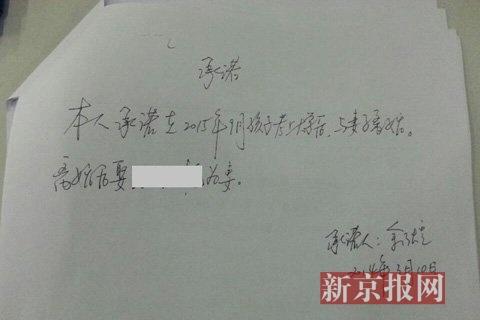 承诺
本人承诺在2015年9月孩子考上大学后,与妻子离婚。
离婚后要 为妻。
承诺人:
2014年3月10日
新京报网